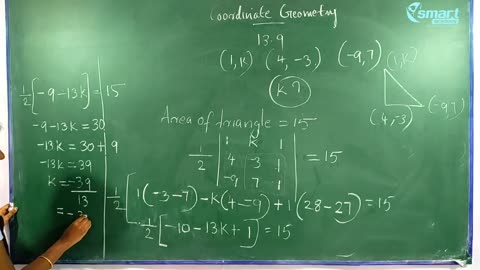 Coordinate Geometry
13.9
(1,K) (4, -3) (-9,7)
K?
(1,K)
(4,-3)
(-9,7)
Area of triangle = 15
1/2 | 1 K 1 |
| 4 -3 1 | = 15
| -9 7 1 |
1/2 [1(-3-7) -K(4--9) +1(28-27) = 15
1/2 [-10-13K+1] = 15
1/2 [-9-13K] = 15
-9-13K = 30
-13K = 30+9
-13K = 39
K = -39/13
= -3
esmart